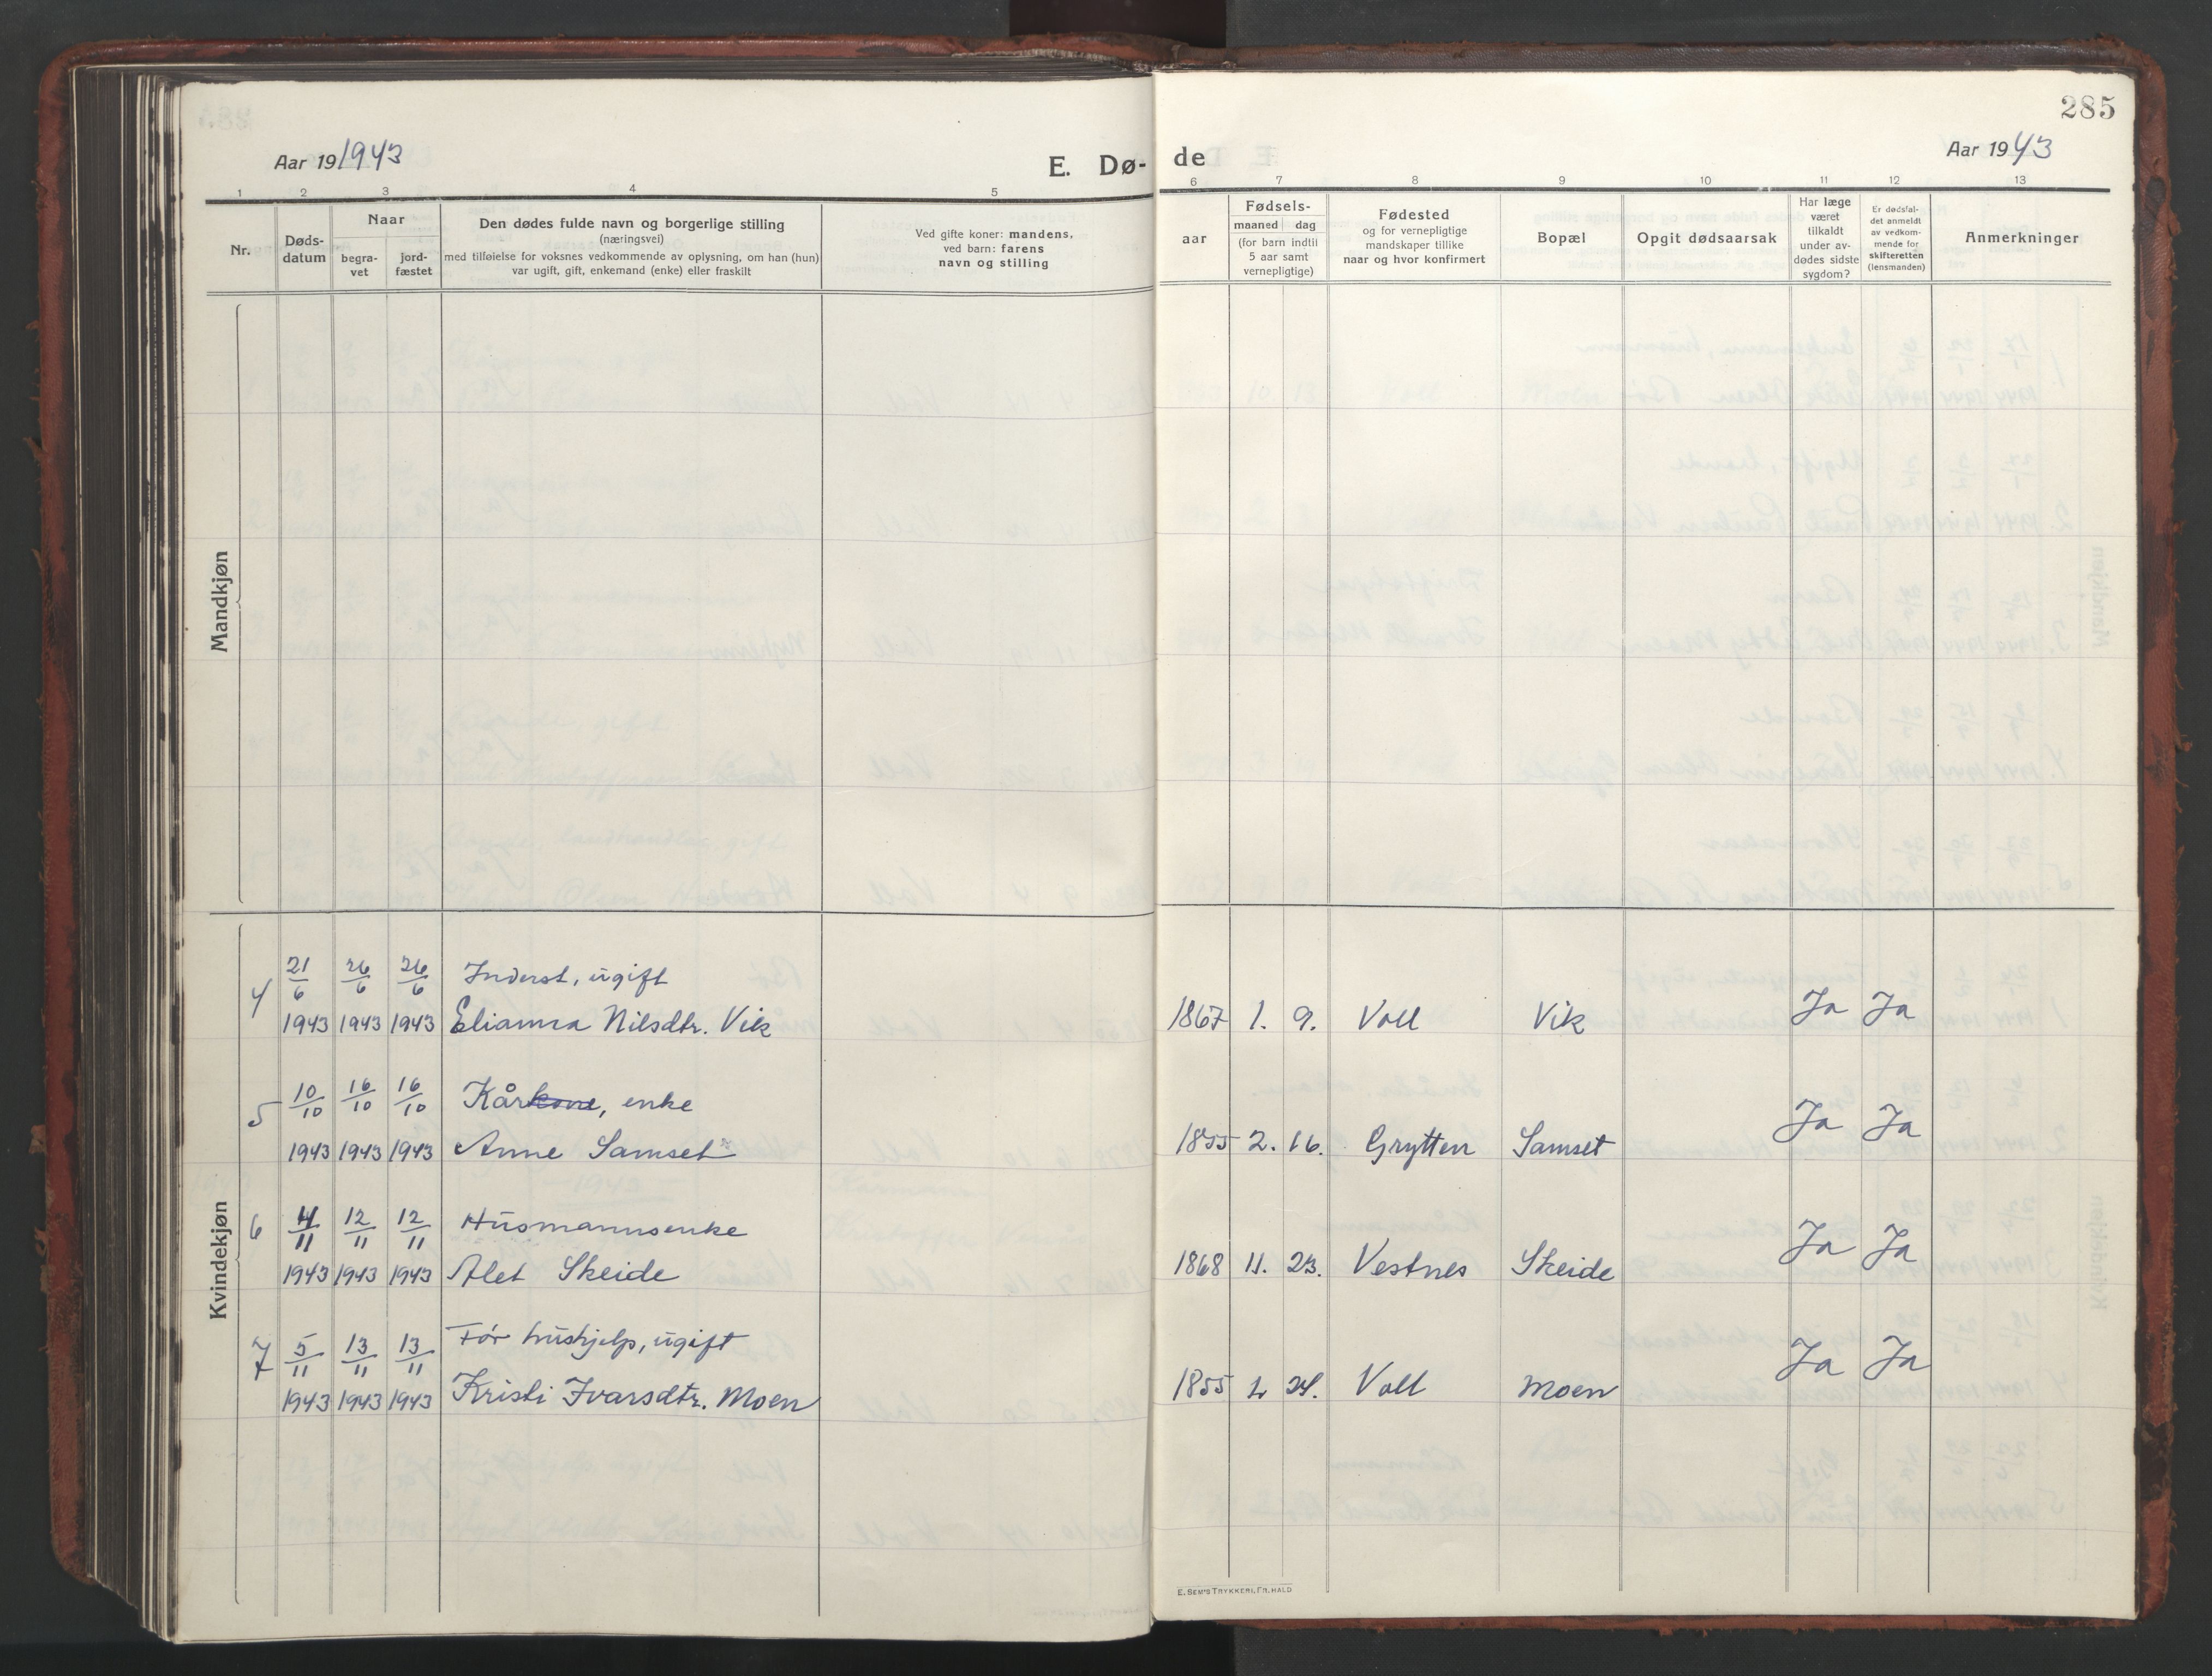 285
Aar 191943
E. Dø-
de
Aar 1943
1 2 3 4 5 6 7 8 9 10 11 12 13
Nr.
Døds-
datum
Naar
begra-
vet
jord-
fæstet
Den dødes fulde navn og borgerlige stilling
(næringsvei)
med tilføielse for voksnes vedkommende av oplysning, om han (hun)
var ugift, gift, enkemand (enke) eller fraskilt
Ved gifte koner: mandens,
ved barn: farens
navn og stilling
aar
Fødsels-
maaned dag
(for barn indtil
5 aar samt
vernepligtige)
Fødested
og for vernepligtige
mandskaper tillike
naar og hvor konfirmert
Bopæl
Opgit dødsaarsak
Har læge
været
tilkaldt
under av-
dødes sidste
sygdom?
Er dødsfal-
det anmeldt
av vedkom-
mende for
skifteretten
(lensmanden)
Anmerkninger
Mandkjøn
Kvindekjøn
4 21/6 26/6 26/6 Inderst, ugift
1943 1943 1943 Elianna Nilsdtr. Vik 1867 1. 9. Voll Vik Ja Ja
5 10/10 16/10 16/10 Kårkone, enke
1943 1943 1943 Anne Samset 1855 2. 16. Grytten Samset Ja Ja
6 4/11 12/11 12/11 Husmannsenke
1943 1943 1943 Alet Skeide 1868 11. 23. Vestnes Skeide Ja Ja
7 5/11 13/11 13/11 Før hushjelp, ugift
1943 1943 1943 Kristi Ivarsdtr. Moen 1855 24. Voll Moen Ja Ja
E. SEM'S TRYKKERI, FR. HALD